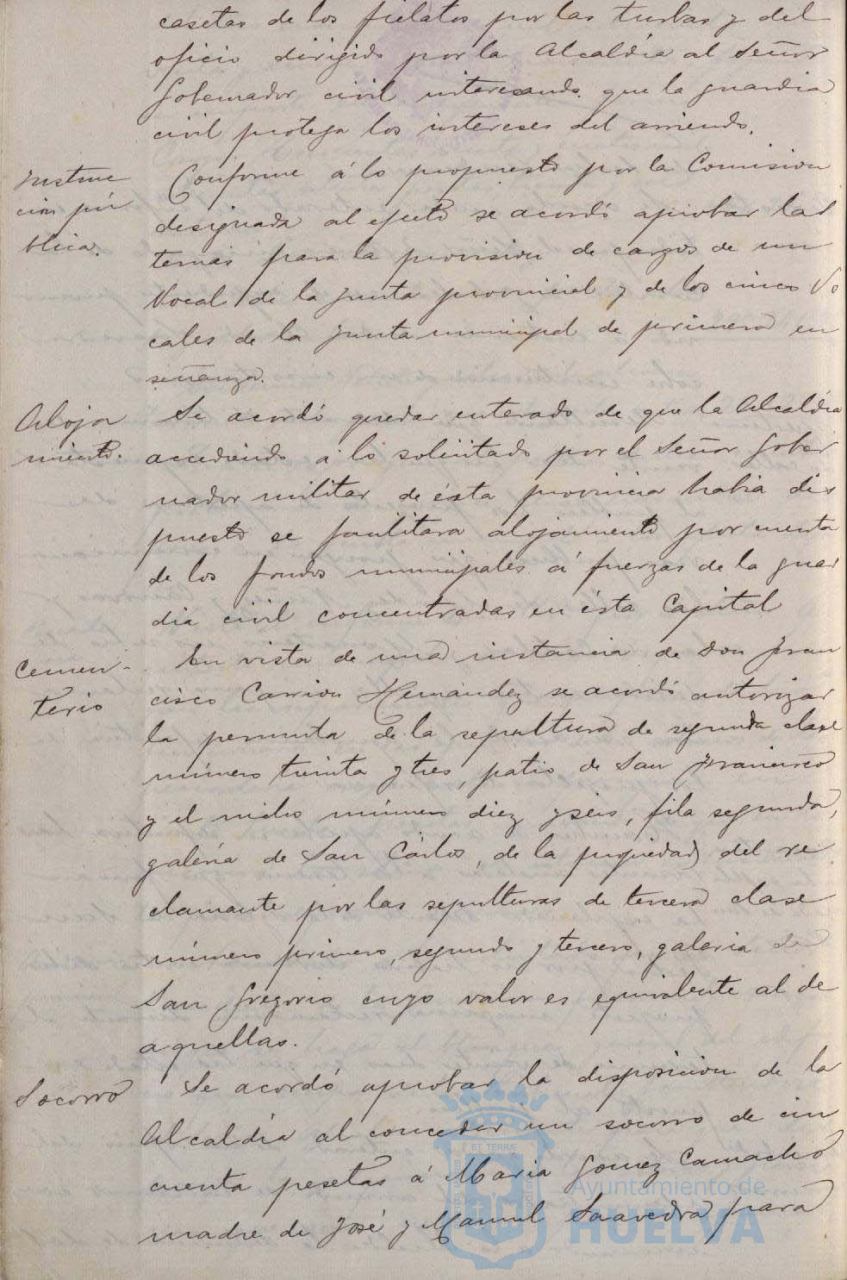 casetas de los fielatos por las turbas y del
oficio dirigido por la Alcaldía al Señor
Gobernador civil interesando que la guardia
civil proteja los intereses del arriendo.
Instruc
cion pú
blica.
Conforme á lo propuesto por la Comision
designada al efecto se acordó aprobar las
ternas para la provision de cargos de un
Vocal de la Junta provincial y de los cinco Vo
cales de la Junta municipal de primera en
señanza.
Aloja
miento.
Se acordó quedar enterado de que la Alcaldía
accediendo á lo solicitado por el Señor Gober
nador militar de ésta provincia habia dis
puesto se facilitara alojamiento por cuenta
de los fondos municipales á fuerzas de la guar
dia civil concentradas en ésta Capital
Cemen-
terio
En vista de una instancia de Don Fran
cisco Carrion Hernández se acordó autorizar
la permuta de la sepultura de segunda clase
número treinta y tres, patio de San Francisco
y el nicho número diez y seis, fila segunda,
galería de San Cárlos, de la propiedad del re
clamante por las sepulturas de tercera clase
número primero, segundo y tercero, galeria de
San Gregorio cuyo valor es equivalente al de
aquellas.
Socorro
Se acordó aprobar la disposicion de la
Alcaldía al conceder un socorro de cin
cuenta pesetas á Maria Gomez Camacho
madre de José y Manuel Saavedra para
Ayuntamiento de
HUELVA